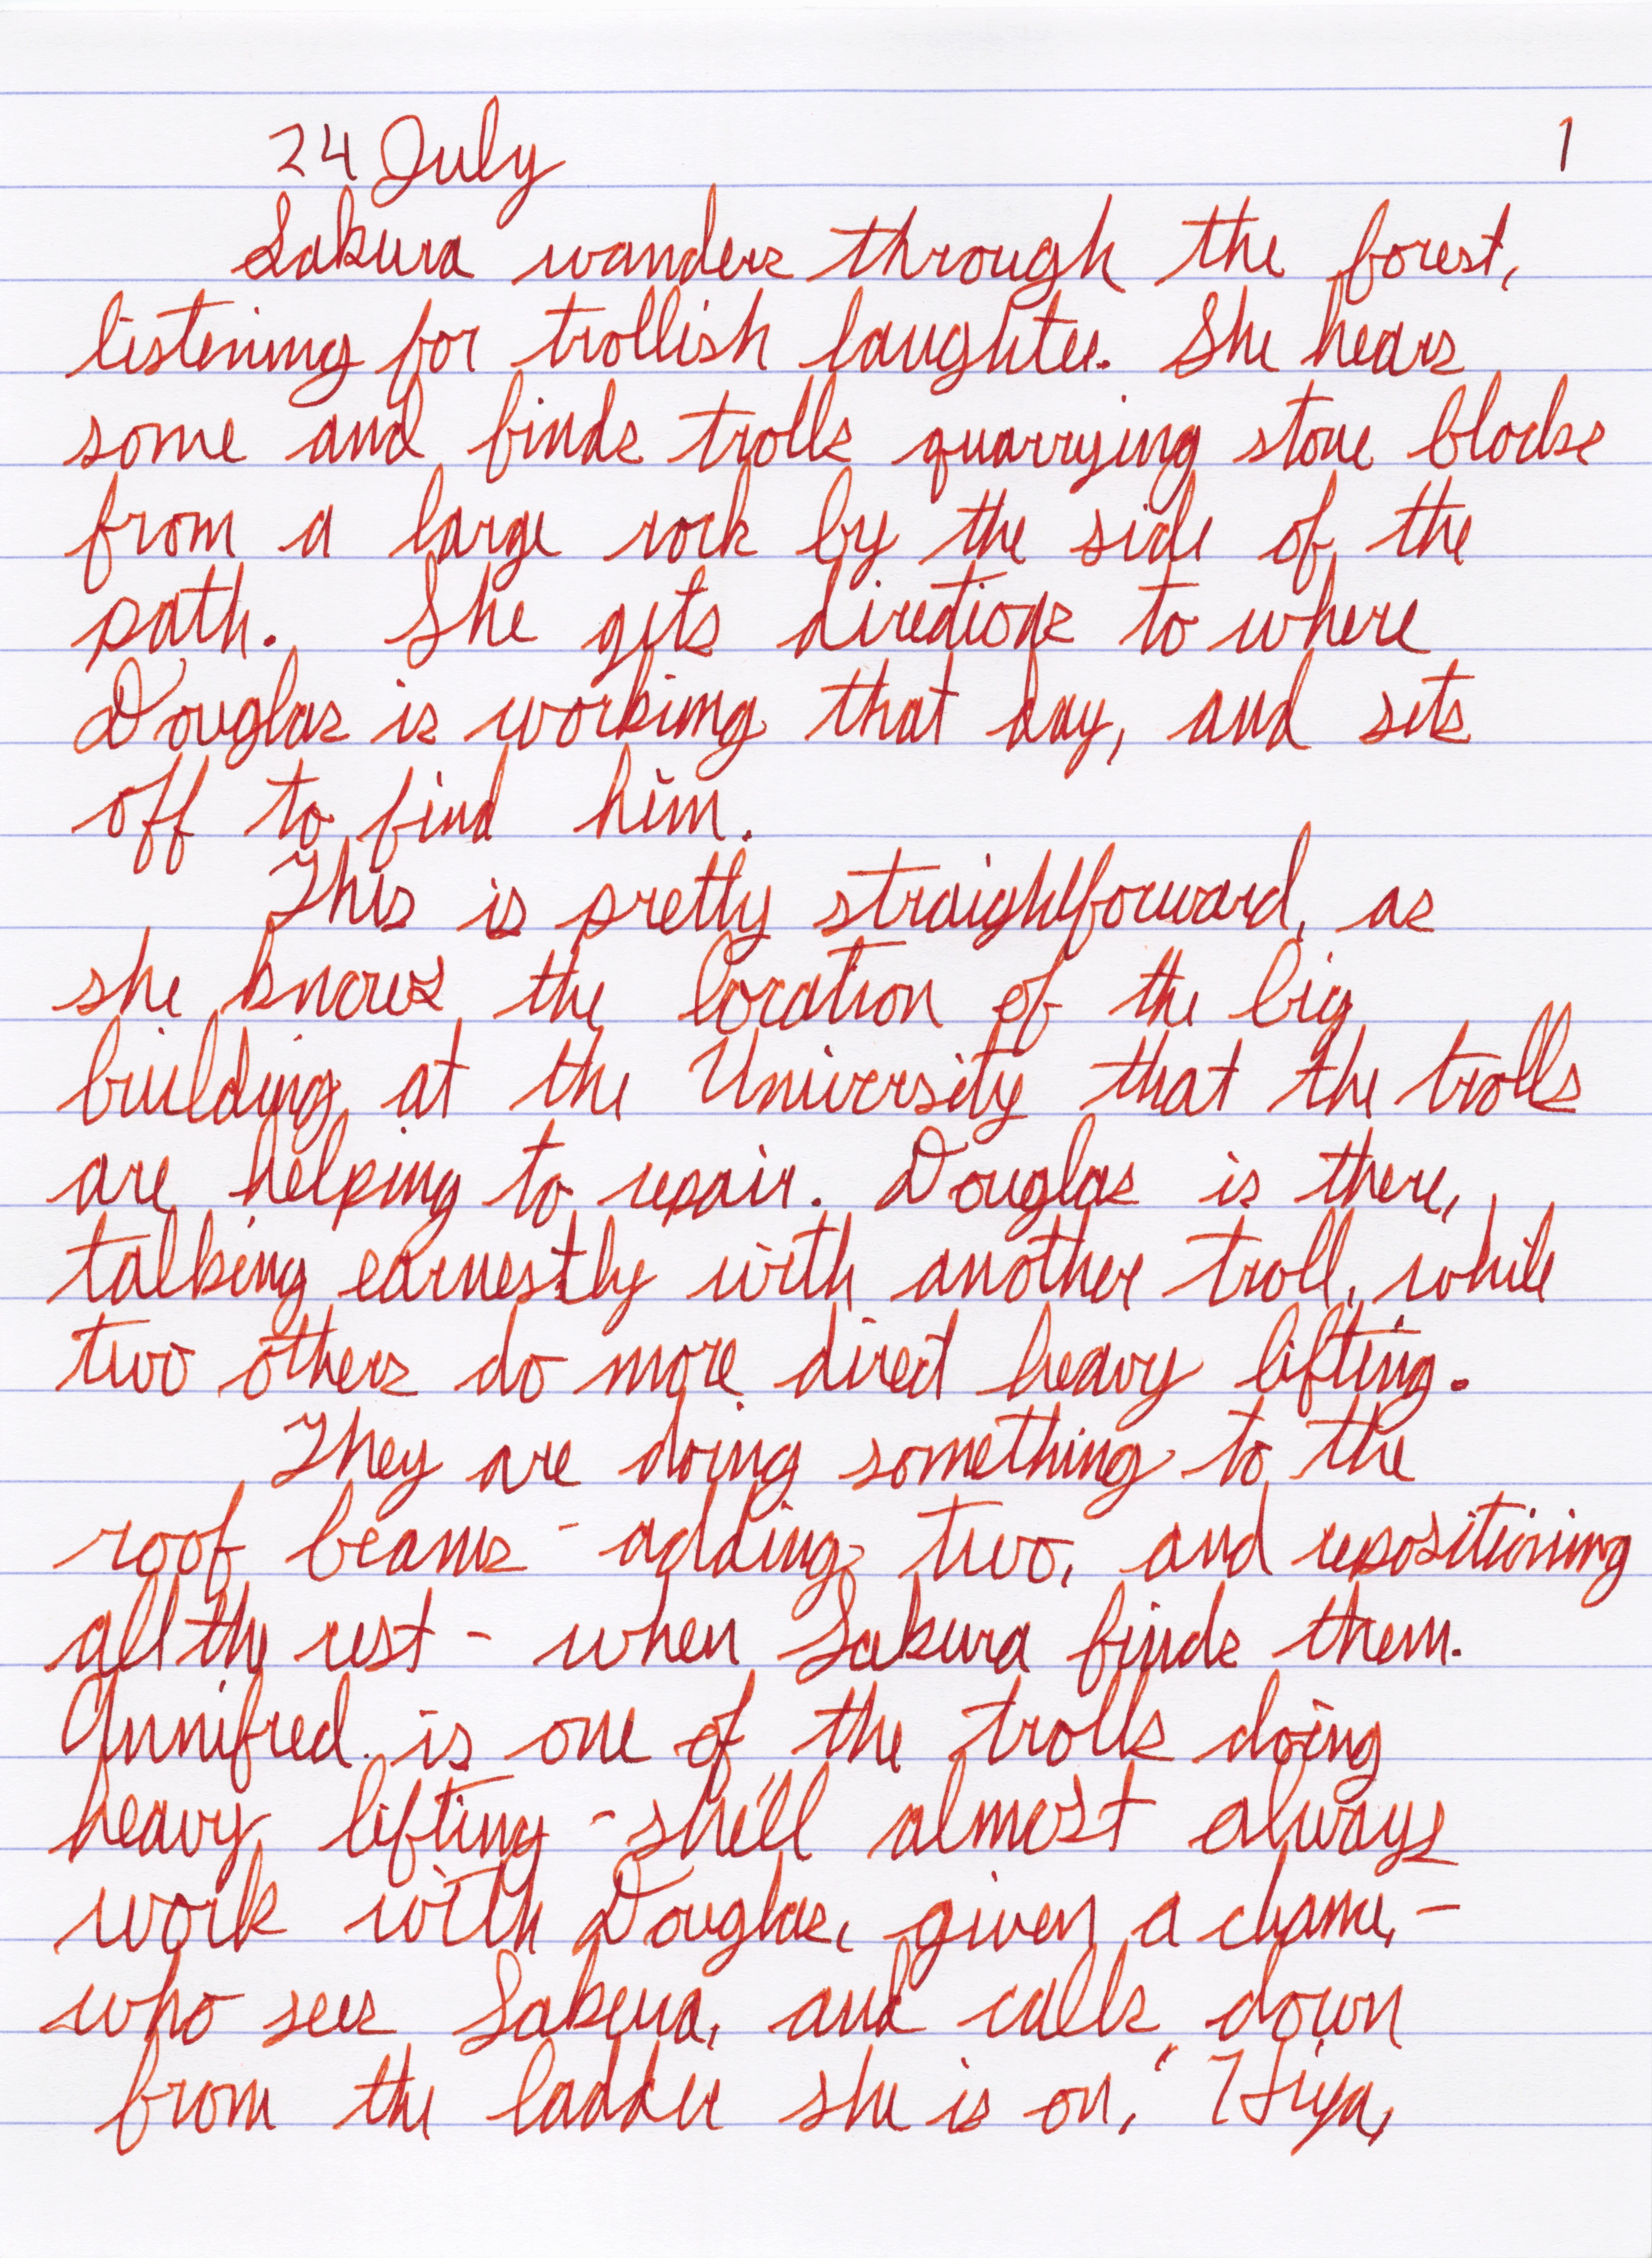 24 July 1
Sakura wanders through the forest,
listening for trollish laughter. She hears
some and finds trolls quarrying stone blocks
from a large rock by the side of the
path. She gets directions to where
Douglas is working that day, and sets
off to find him.
This is pretty straightforward, as
she knows the location of the big
building at the University that the trolls
are helping to repair. Douglas is there,
talking earnestly with another troll, while
two others do more direct heavy lifting.
They are doing something to the
roof beams - adding two, and repositioning
all the rest - when Sakura finds them.
Gunnifred is one of the trolls doing
heavy lifting - she'll almost always
work with Douglas, given a chance, -
who sees Sakura, and calls down
from the ladder she is on, "Hiya,